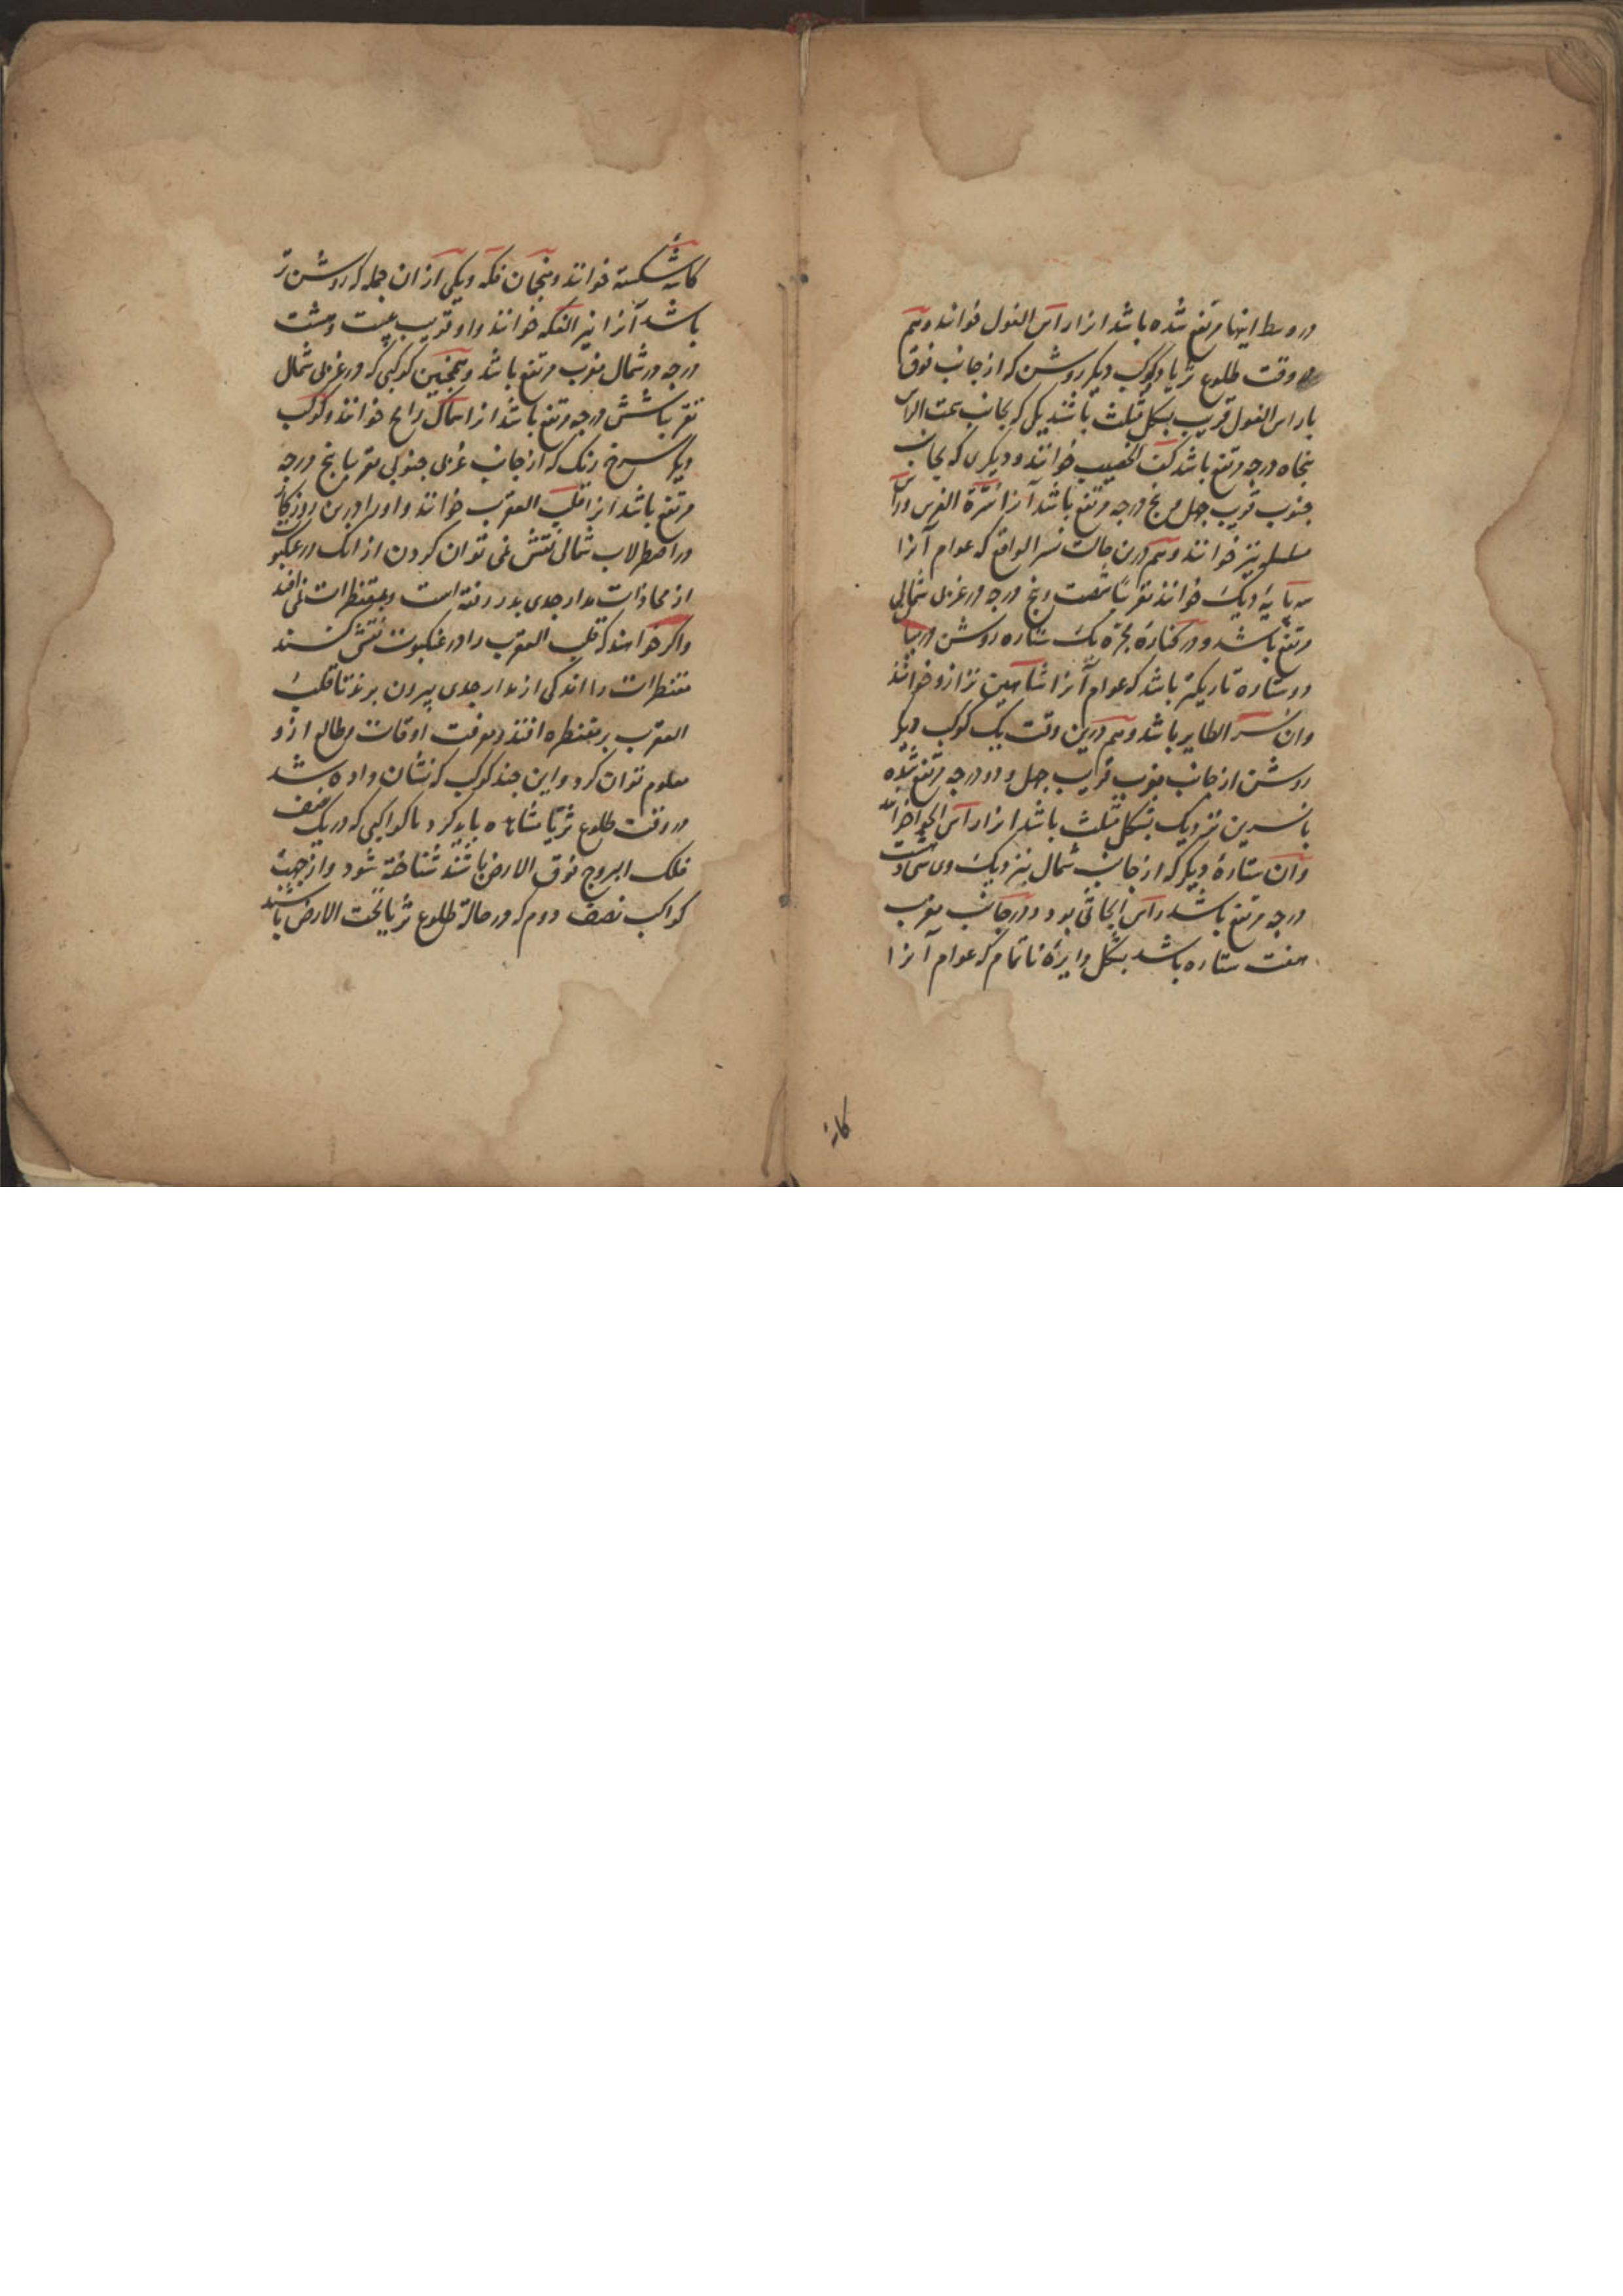 در وسط اینها مرتفع شده باشد انرا راس الغول خوانند و هم
در وقت طلوع ثریا دو کوکب دیکر روشن که از جانب فوق
با راس الغول قریب بشکل مثلث باشند یکی که بجانب سمت الراس
پنجاه درجه مرتفع باشد کف الخضیب خوانند و دیکری که بجانب
جنوب قریب چهل و پنج درجه مرتفع باشد آنرا سرة الفرس و راس
مسلسله نیز خوانند و هم درین حالت نسر الواقع که عوام آنرا
سه پایهٔ دیک خوانند تقریبا شصت و پنج درجه در غربی شمالی
مرتفع باشد و در کنارهٔ مجره یک ستاره روشن در میان
دو ستاره تاریکتر باشد که عوام آنرا شاهین ترازو خوانند
وان نسر الطایر باشد و هم درین وقت یک کوکب دیکر
روشن از جانب مغرب قریب چهل و دو درجه مرتفع شده
با نسرین نزدیک بشکل مثلث باشد انرا راس الحوا خوانند
وان ستارهٔ دیکر که از جانب شمال نزدیک وی سی و هشت
درجه مرتفع باشد راس الجاثی بود و در جانب مغرب
هفت ستاره باشد بشکل دایرهٔ ناتمام که عوام آنرا
کاسه
کاسهٔ شکسته خوانند و منجمان فکه و یکی از ان جمله که روشن تر
باشد آنرا نیر الفکه خوانند و او قریب بیست و هشت
درجه در شمال مغرب مرتفع باشد و همچنین کوکبی که در غربی شمال
تقریبا شش درجه مرتفع باشد انرا سماک رامح خوانند و کوکب
دیکر سرخ رنک که از جانب غربی جنوبی تقریبا پنج درجه
مرتفع باشد انرا قلب العقرب خوانند و او را درین روزکار
در اصطرلاب شمالی نقش نمی توان کردن از انک در عنکبوت
از محاذات مدار جدی بدر رفته است و بمقنطرات نمی افتد
واکر خواهند که قلب العقرب را در عنکبوت نقش کنند
مقنطرات را اندکی از مدار جدی بیرون برند تا قلب
العقرب بر مقنطره افتد و معرفت اوقات و طالع ازو
معلوم توان کرد و این چند کوکب که نشان داده شد
در وقت طلوع ثریا مشاهده باید کرد تا کواکبی که در یک نصف
فلک البروج فوق الارض باشند شناخته شود و از جهت
کواکب نصف دوم که در حالة طلوع ثریا تحت الارض باشند